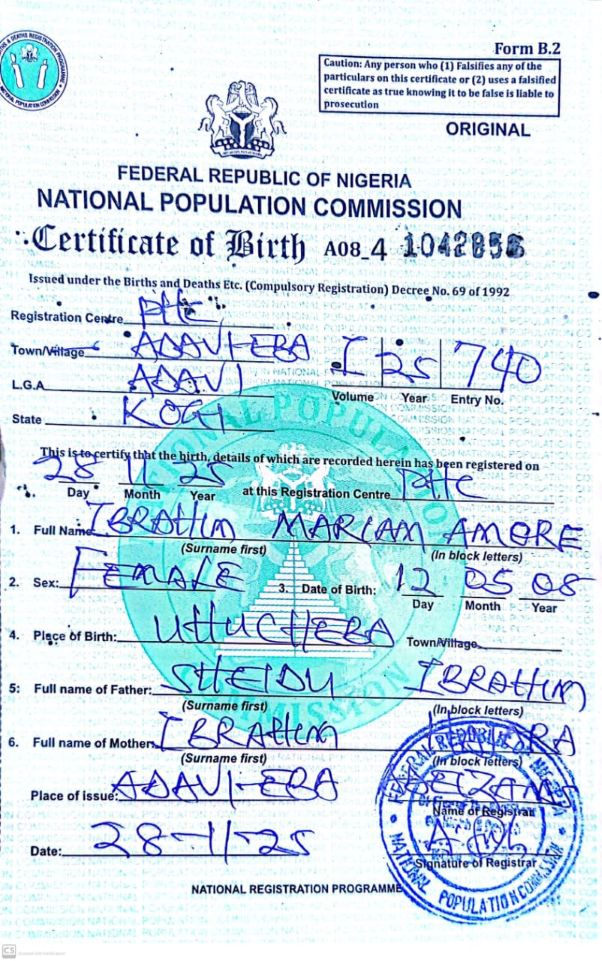 Form B.2
Caution: Any person who (1) Falsifies any of the
particulars on this certificate or (2) uses a falsified
certificate as true knowing it to be false is liable to
prosecution
ORIGINAL
FEDERAL REPUBLIC OF NIGERIA
NATIONAL POPULATION COMMISSION
Certificate of Birth A08_4
Issued under the Births and Deaths Etc. (Compulsory Registration) Decree No. 69 of 1992
Registration Centre PHC
Town/Village ADAVI-EBA I 25 740
L.G.A ADAVI Volume Year Entry No.
State KOGI
This is to certify that the birth, details of which are recorded herein has been registered on
28 11 25 at this Registration Centre PHC
Day Month Year
1. Full Name IBRAHIM MARIAM
(Surname first) (In block letters)
2. Sex: FEMALE 3. Date of Birth: 12 05 08
Day Month Year
4. Place of Birth: Town/Village
5: Full name of Father: SHEIDU IBRAHIM
(Surname first) (In block letters)
6. Full name of Mother: IBRAHIM
(Surname first) (In block letters)
Place of issue: ADAVI-EBA
Name of Registrar
Date: 28-11-25
Signature of Registrar
NATIONAL REGISTRATION PROGRAMME
FEDERAL REPUBLIC OF NIGERIA
NATIONAL POPULATION COMMISSION